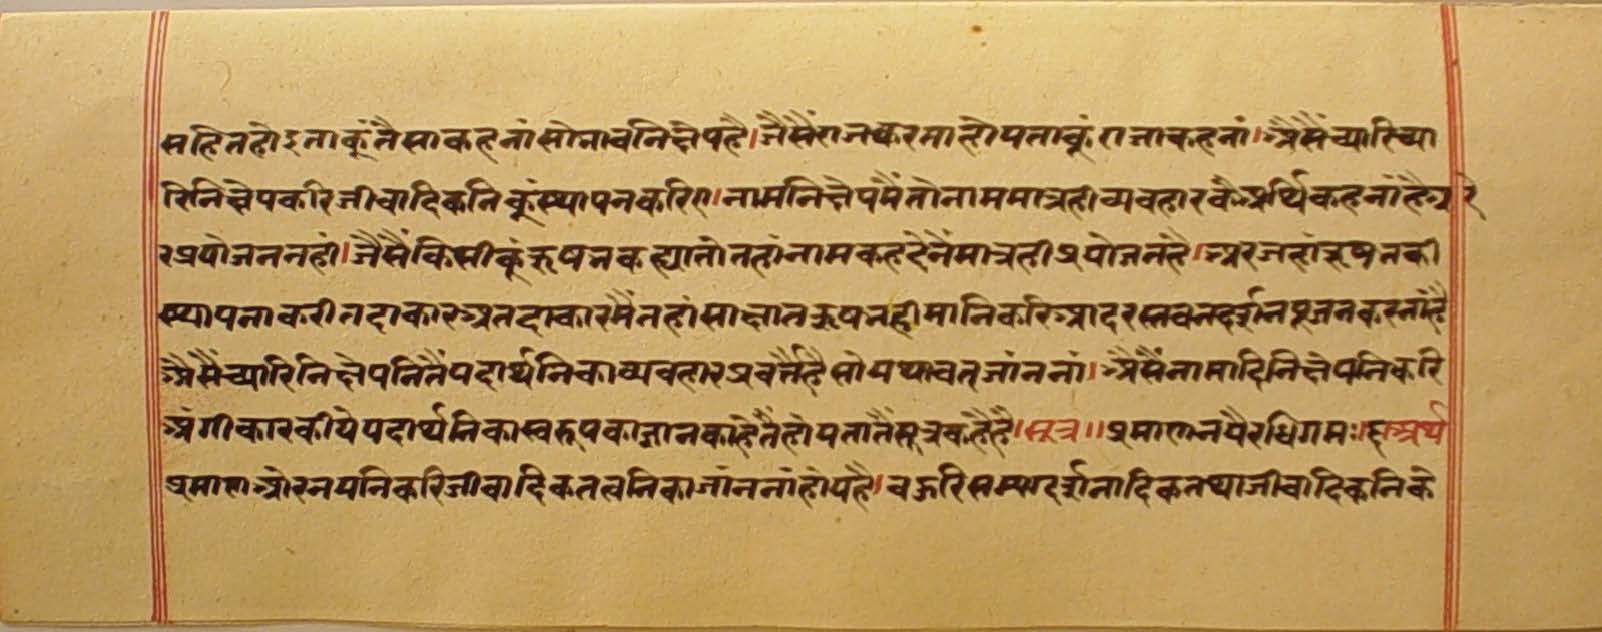 सहित होइ ताकूं तैसा कहनां सो भाव निक्षेप है। जैसैं राज करता होय ताकूं राजा कहनां। अैसैं च्यारि च्या
रि निक्षेप करि जीवादिकनि कूं स्थापन करिए। नाम निक्षेप मैं तो नाम मात्र ही व्यवहार कै अर्थि कहनां है और
र प्रयोजन नहीं। जैसैं किसी कूं ऋषभ कह्या तो तहां नाम कह देनैं मात्र ही प्रयोजन है। अर जहां ऋषभ की
स्थापना करी तदाकार अतदाकार मैं तहां साक्षात ऋषभ ही मानि करि आदर स्तवन दर्शन पूजन करनां है
अैसैं च्यारि निक्षेपनि तैं पदार्थनि का व्यवहार प्रवर्त्तै है सो यथावत जांननां। अैसैं नामादि निक्षेपनि करि
अंगीकार कीये पदार्थनि का स्वरूप का ज्ञान काहे तैं होय तातैं सूत्र कहै है। सूत्र॥ प्रमाणनयैरधिगमः॥६॥ अर्थ
प्रमाण और नयनि करि जीवादिक तत्वनि का जांननां होय है। बहुरि सम्यग्दर्शनादिक तथा जीवादिकनि के